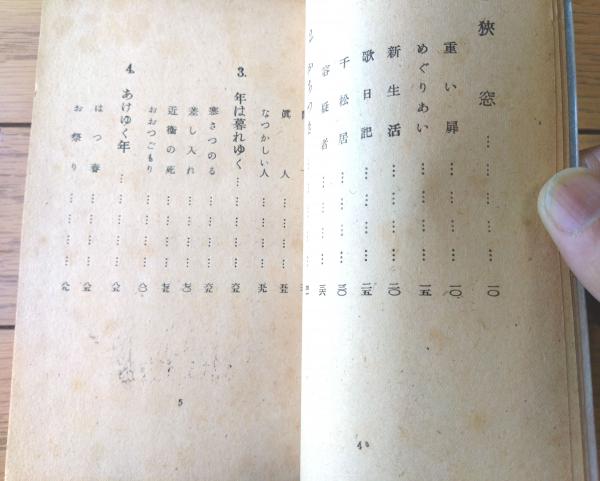 狹窓……………一〇
重い扉……………一〇
めぐりあい……………一五
新生活……………二〇
歌日記……………二五
千松居……………三〇
容疑者……………三六
眞人……………五五
なつかしい人……………五九
3. 年は暮れゆく……………六五
寒さつのる……………六五
差し入れ……………七〇
近衞の死……………七五
おおつごもり……………八〇
4. あけゆく年……………八五
はつ春……………八五
お祭り……………八九
5